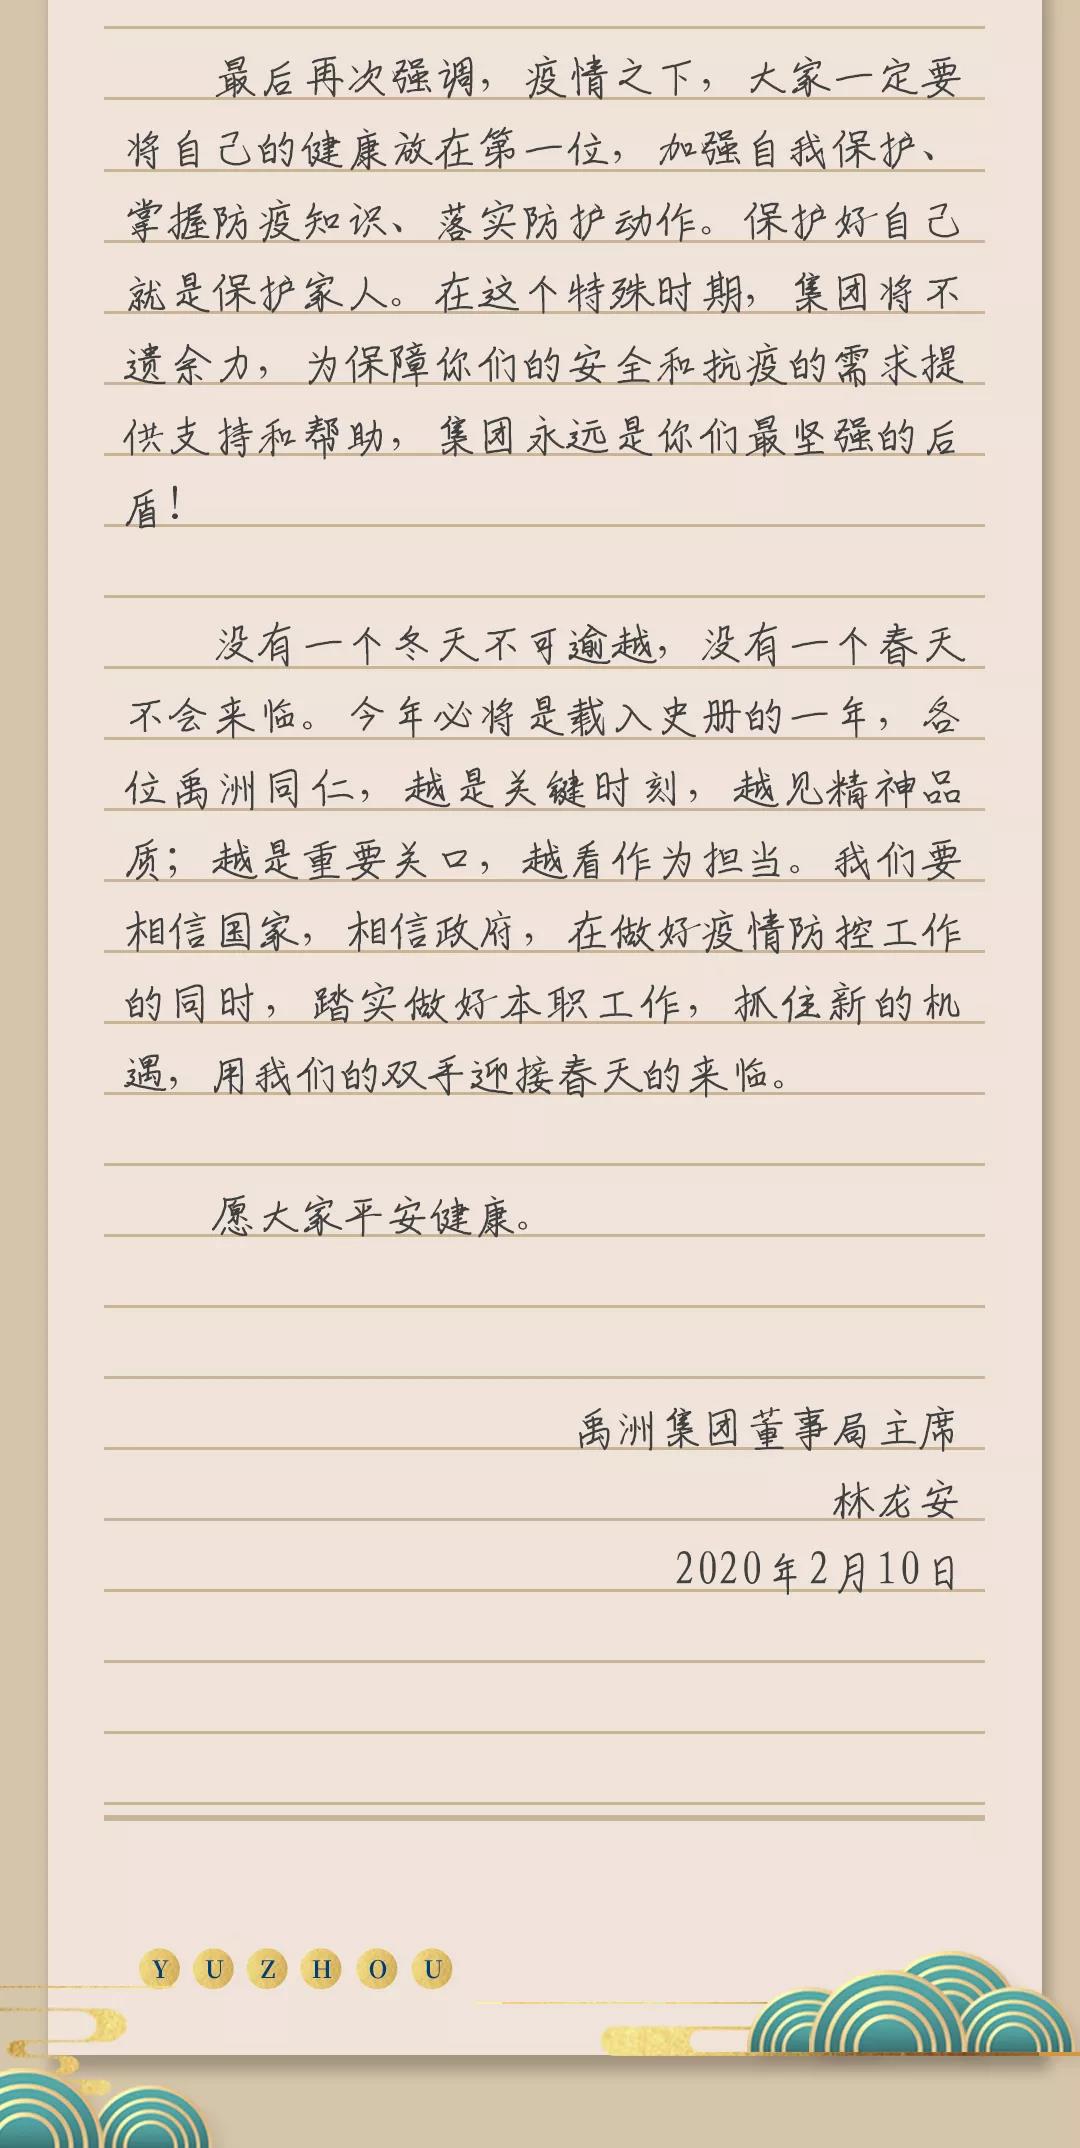 最后再次强调，疫情之下，大家一定要
将自己的健康放在第一位，加强自我保护、
掌握防疫知识、落实防护动作。保护好自己
就是保护家人。在这个特殊时期，集团将不
遗余力，为保障你们的安全和抗疫的需求提
供支持和帮助，集团永远是你们最坚强的后
盾！
没有一个冬天不可逾越，没有一个春天
不会来临。今年必将是载入史册的一年，各
位禹洲同仁，越是关键时刻，越见精神品
质；越是重要关口，越看作为担当。我们要
相信国家，相信政府，在做好疫情防控工作
的同时，踏实做好本职工作，抓住新的机
遇，用我们的双手迎接春天的来临。
愿大家平安健康。
禹洲集团董事局主席
林龙安
2020年2月10日
YUZHOU